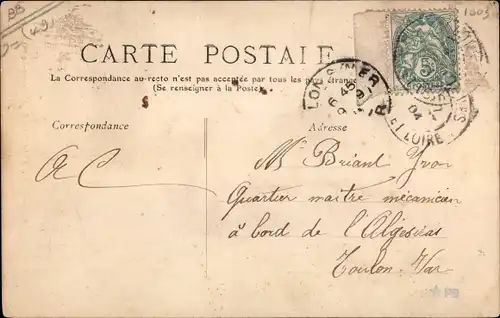 BB
491
1903
CARTE POSTALE
La Correspondance au recto n'est pas acceptée par tous les pays étrange
(Se renseigner à la Poste)
5
ET LOIRE
04
6 45
Correspondance
Adresse
AC
M. Briant Yvon
Quartier maitre mécanicien
à bord de l'Algésiras
Toulon. Var
PB